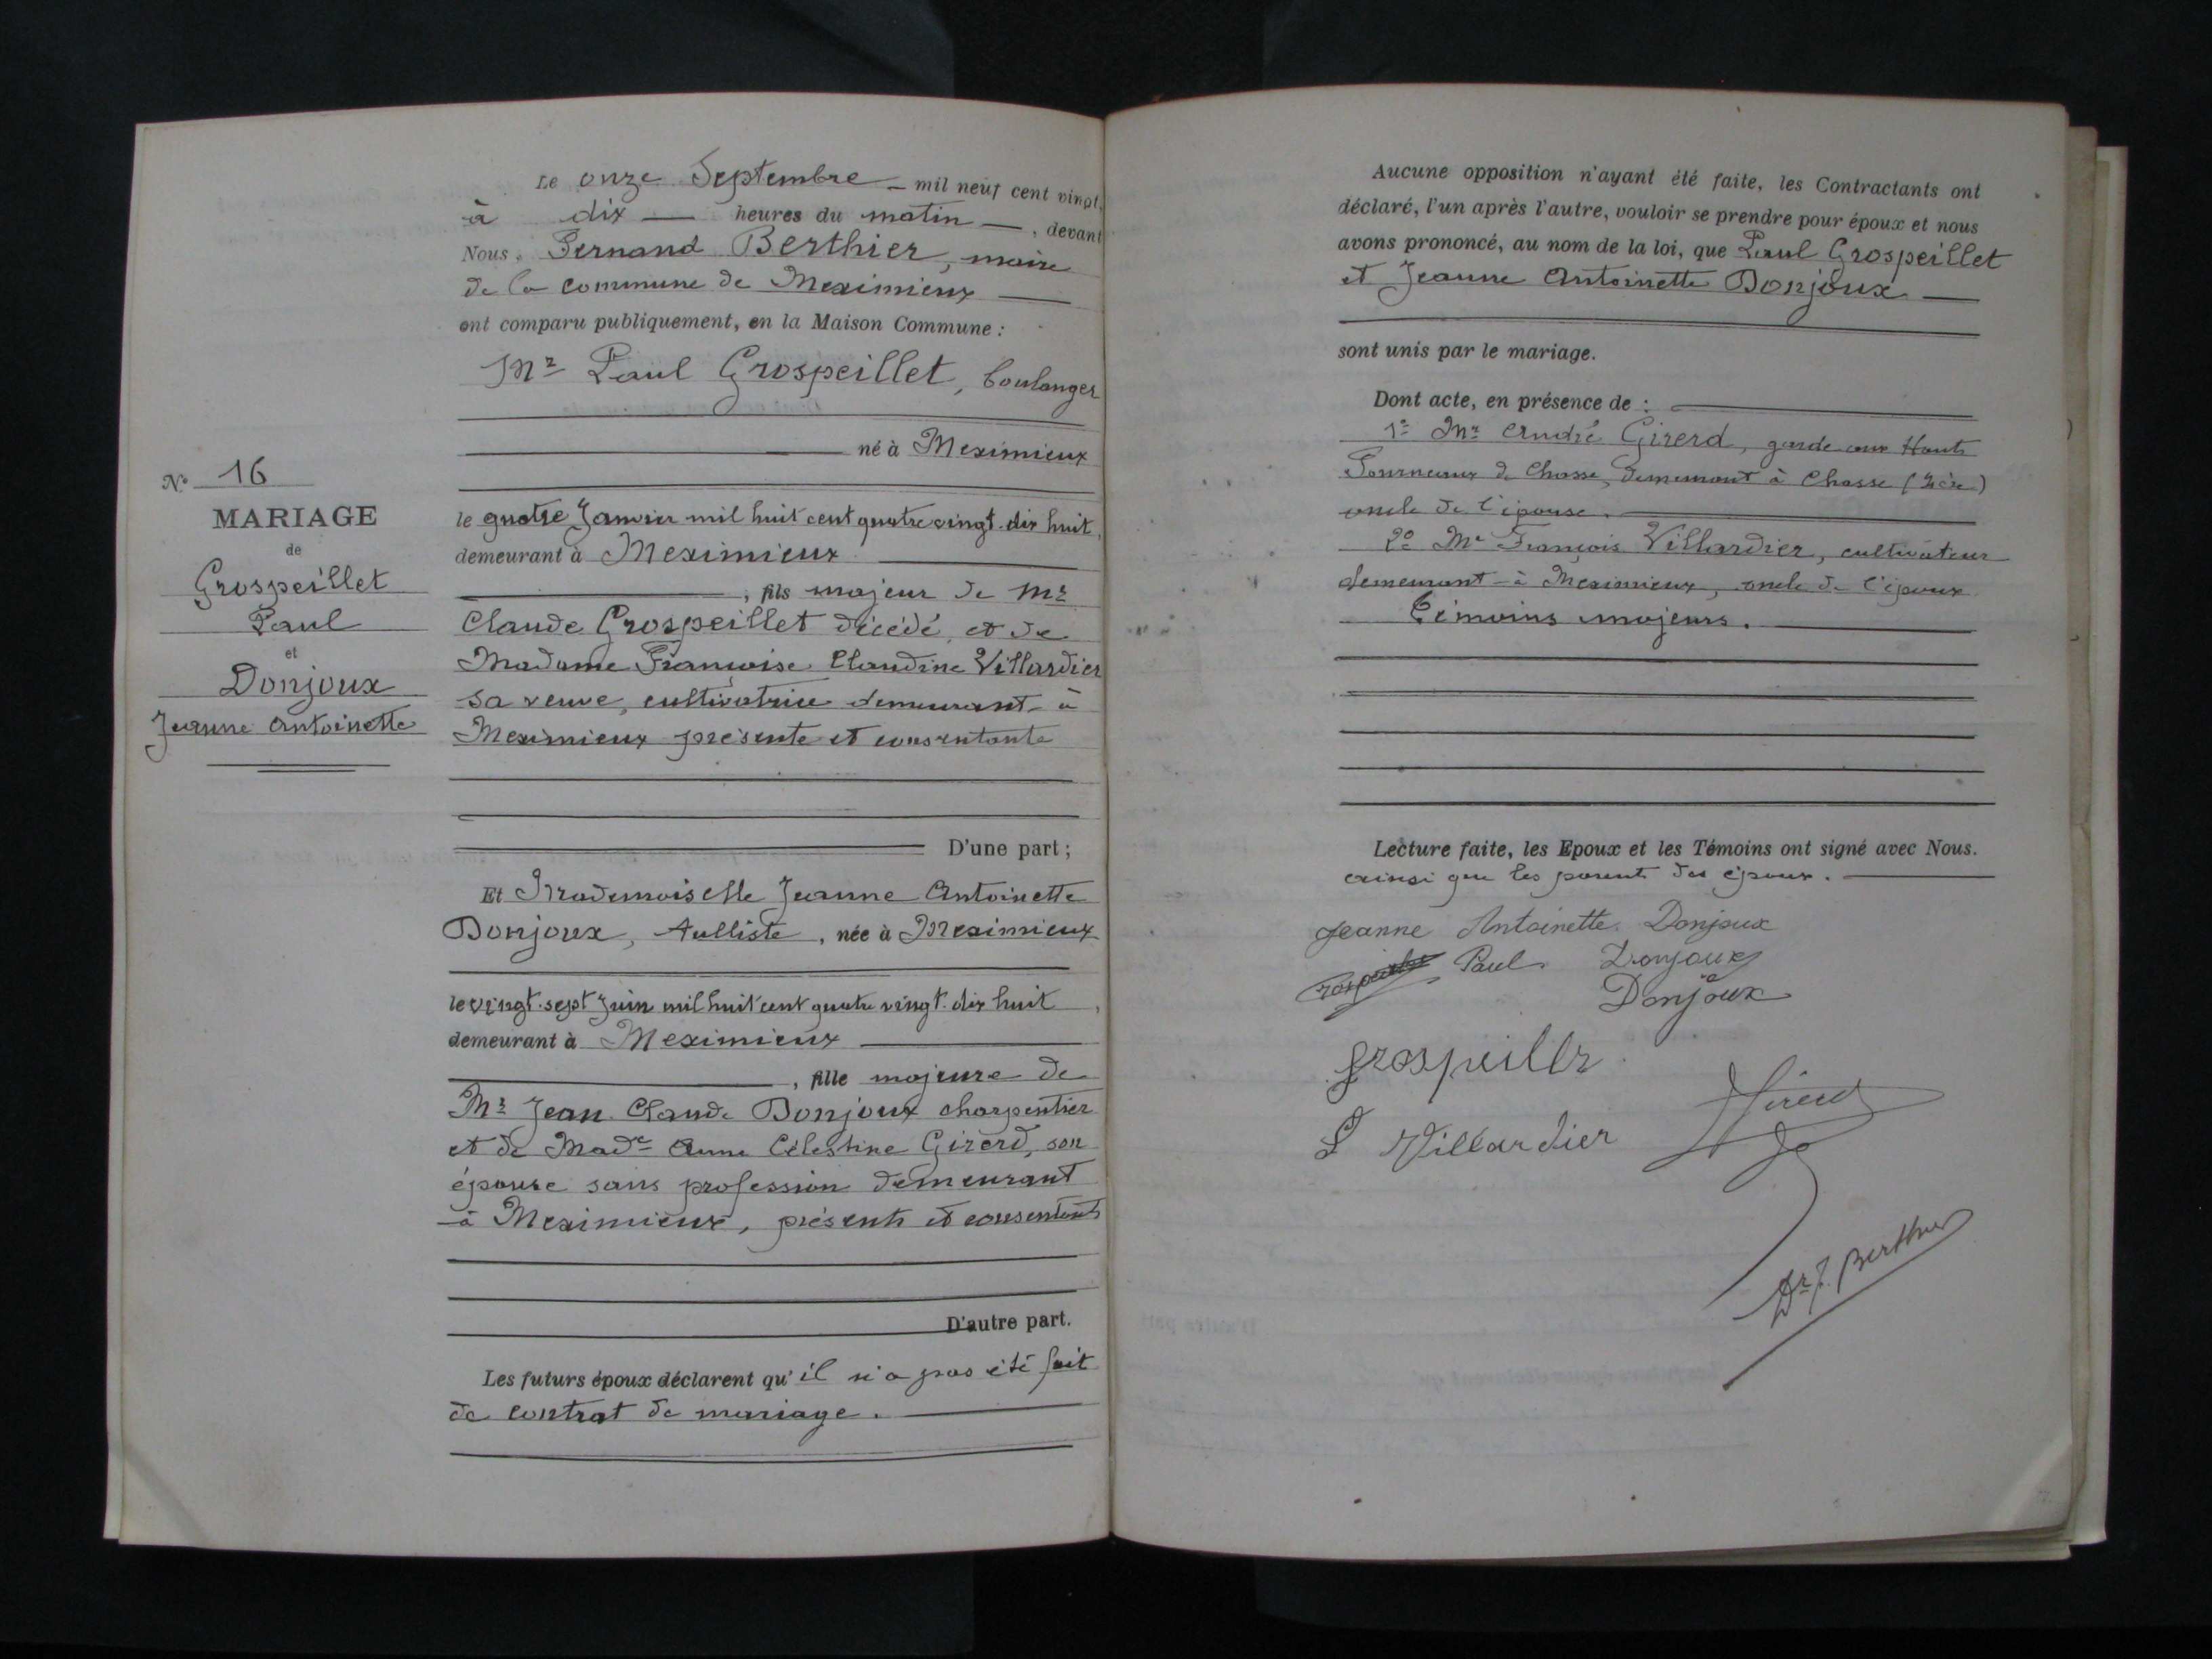 Le onze Septembre - mil neuf cent vingt,
à dix — heures du matin —, devant
Nous, Fernand Berthier, maire
de la commune de Meximieux
ont comparu publiquement, en la Maison Commune :
Mr Paul Grospeillet, boulanger
né à Meximieux
le quatre Janvier mil huit cent quatre vingt. dix huit,
demeurant à Meximieux
, fils majeur de Mr
Claude Grospeillet décédé, et de
Madame Françoise Claudine Villardier
sa veuve, cultivatrice demeurant à
Meximieux présente et consentante
D'une part ;
Et Mademoiselle Jeanne Antoinette
Donjoux, tulliste, née à Meximieux
le vingt. sept Juin mil huit cent quatre vingt. dix huit,
demeurant à Meximieux
, fille majeure de
Mr Jean Claude Donjoux charpentier
et de Made Anne Célestine Girerd, son
épouse sans profession demeurant
à Meximieux, présents et consentants
D'autre part.
Les futurs époux déclarent qu'il n'a pas été fait
de contrat de mariage.
No 16
MARIAGE
de
Grospeillet
Paul
et
Donjoux
Jeanne Antoinette
Aucune opposition n'ayant été faite, les Contractants ont
déclaré, l'un après l'autre, vouloir se prendre pour époux et nous
avons prononcé, au nom de la loi, que Paul Grospeillet
et Jeanne Antoinette Donjoux —
sont unis par le mariage.
Dont acte, en présence de :
1o Mr André Girerd, garde aux Hauts
Fourneaux de Chasse, demeurant à Chasse (Isère)
oncle de l'épouse.
2o Mr François Villardier, cultivateur
demeurant à Meximieux, oncle de l'époux
Témoins majeurs.
Lecture faite, les Epoux et les Témoins ont signé avec Nous.
ainsi que les parents des époux.
Jeanne Antoinette Donjoux
Paul Donjoux
Donjoux
Villardier Girerd
Dr F. Berthier